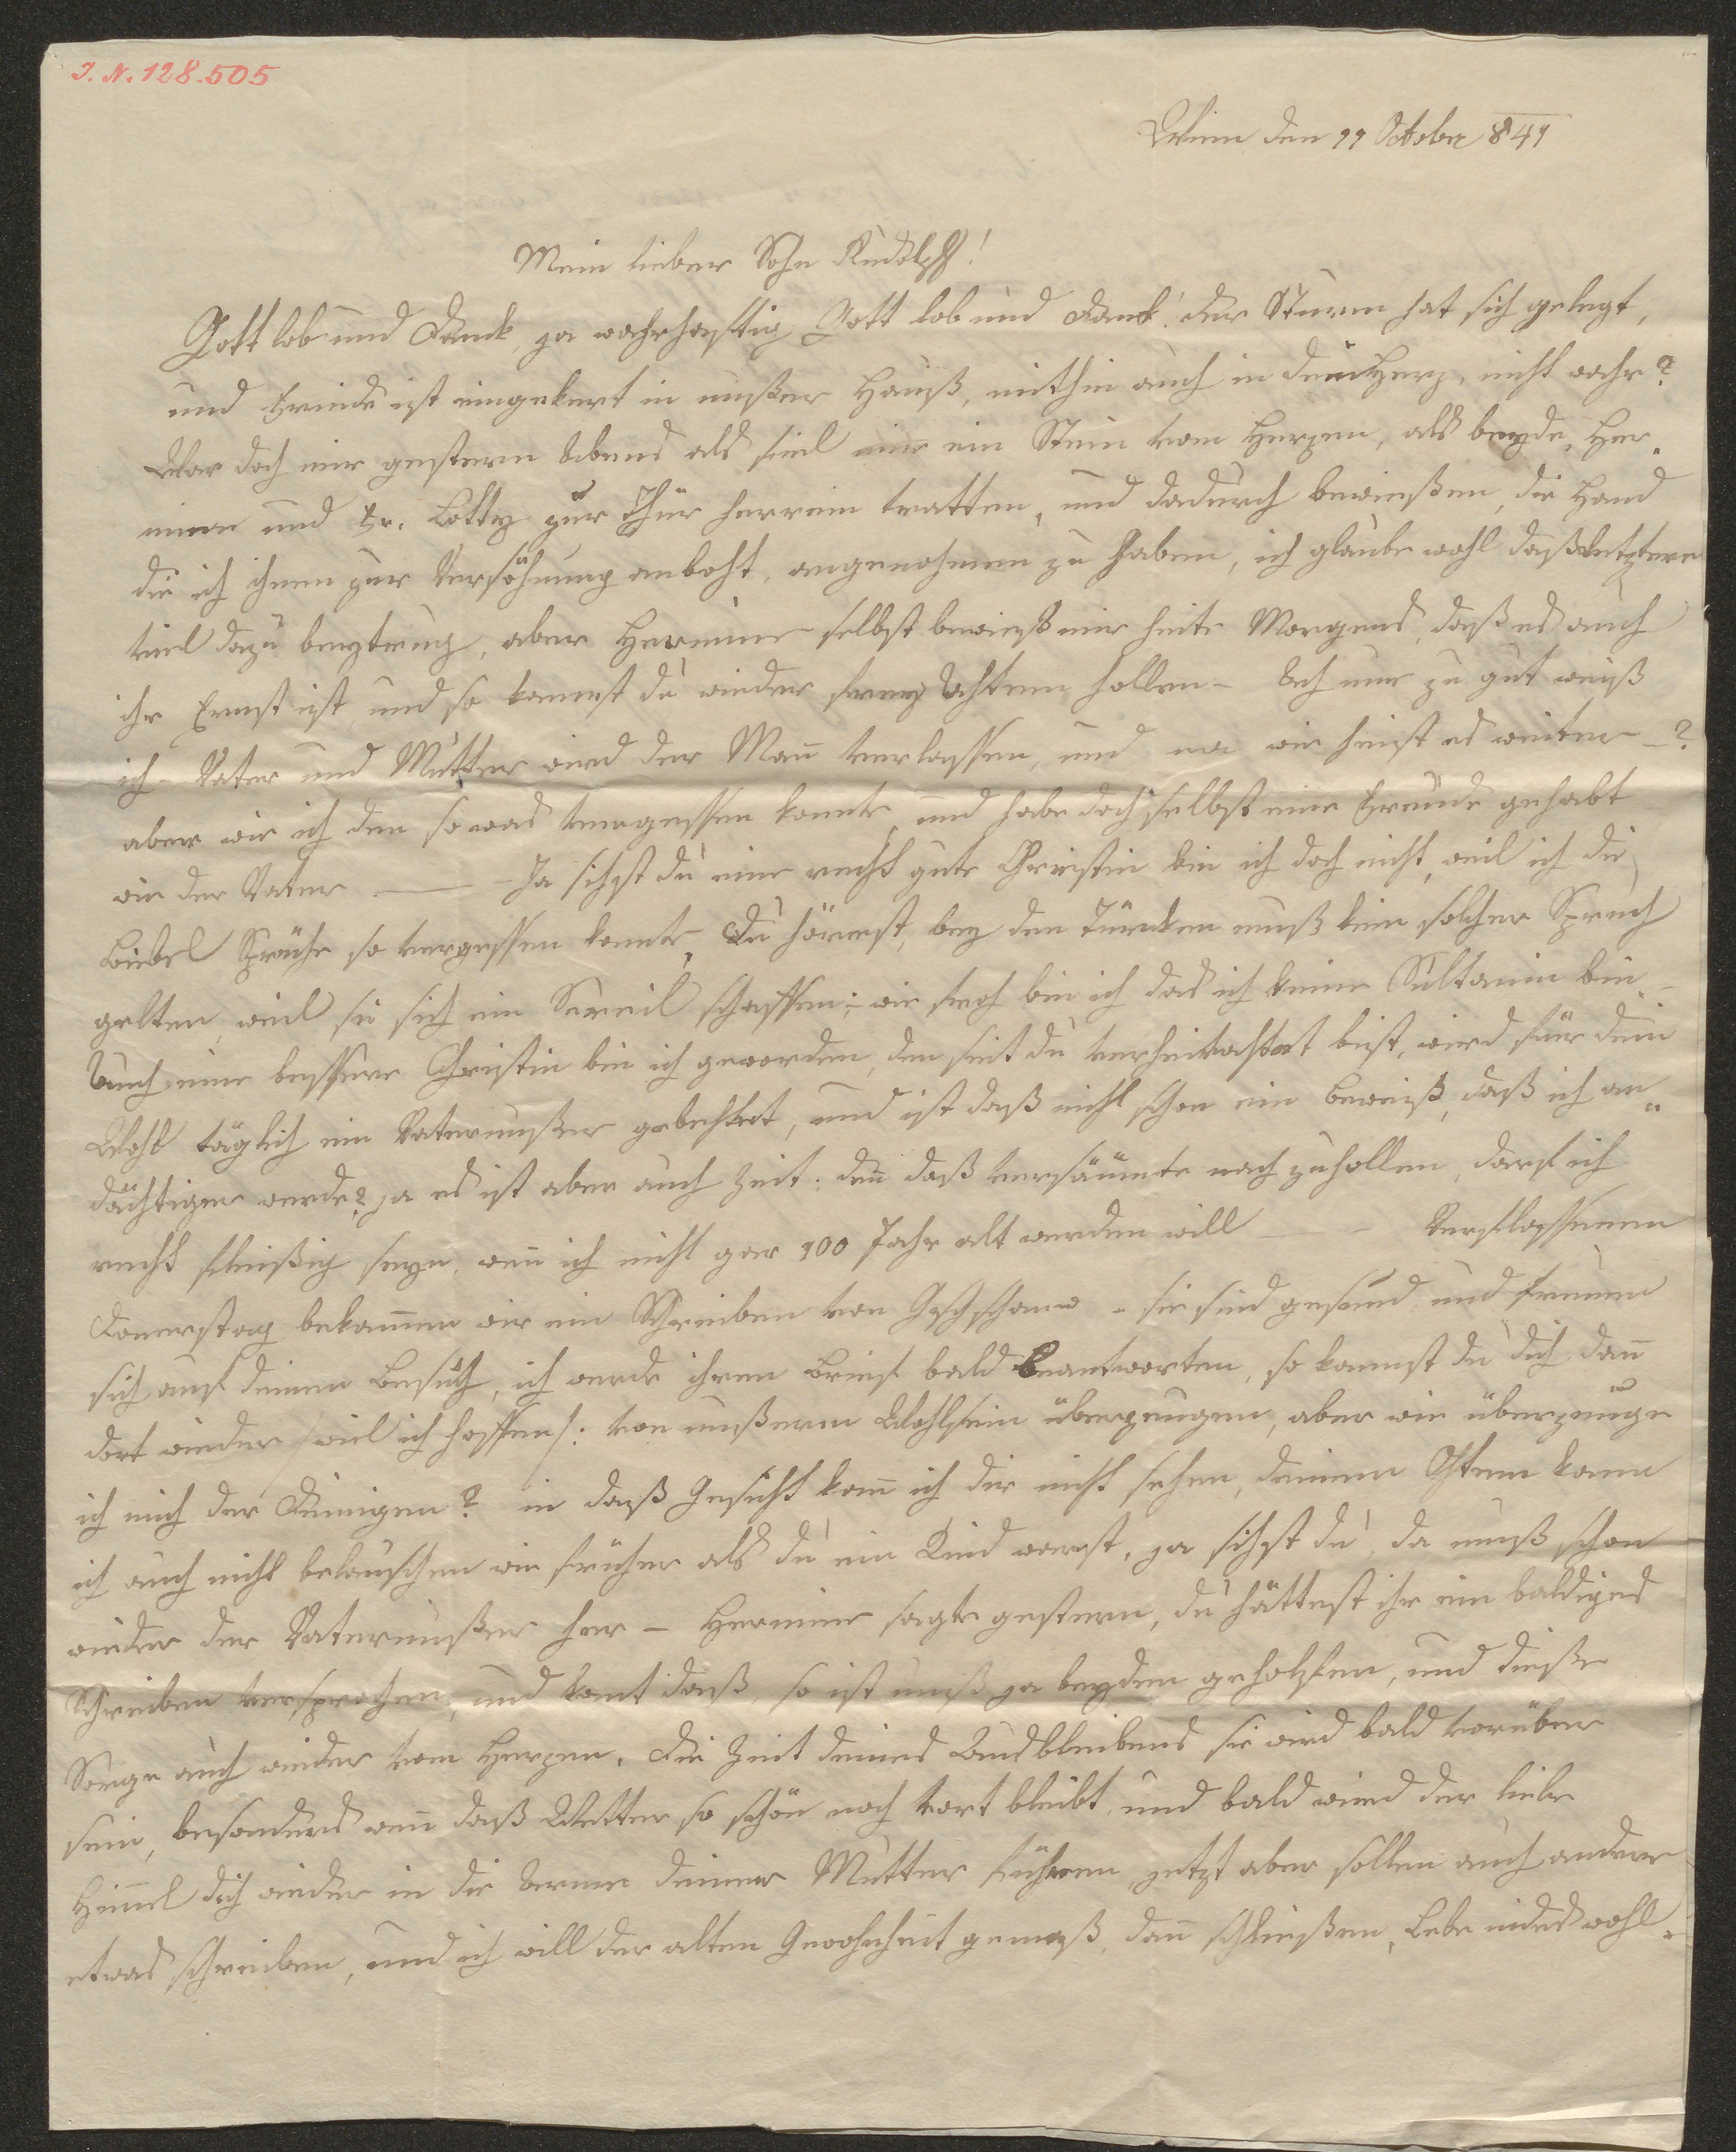 I. N. 128.505
Wien den 11 October 841
Mein lieber Sohn Rudolph!
Gott lob und Dank, ja wahrhaftig Gott lob und Dank! der Sturm hat sich gelegt,
und Friede ist eingekert in unßer Hauß, mithin auch in dein Herz, nicht wahr?
War doch mir gestern Abend als fiel mir ein Stein vom Herzen, als beyde, Her„
mine und Fr. Lotty zur Thür herrein tratten, und dadurch bewießen, die Hand
die ich ihnen zur Versöhnung anboht, angenohmen zu haben, ich glaube wohl daß letztere
viel dazu beytrug, aber Hermine selbst bewieß mir heite Morgens, daß es auch
ihr Ernst ist, und so kannst du wieder frey Athem hollen – Ach nur zu gut weiß
ich – Vater und Mutter wird der Man̄ verlassen, und na wie heist es weiter – ?
aber wie ich den so was vergessen konnte, und habe doch selbst eine Freude gehabt
wie der Vater —— Ja sihst du eine recht gute Christin bin ich doch nicht, weil ich die
Biebel Sprüche so vergessen konte, Du hörrest, bey den Türcken muß kein solcher Spruch
gelten, weil sie sich ein Sereil schaffen; wie froh bin ich das ich keine Sultanin bin –
Auch eine bessere Christin bin ich geworden, den seit du verheirathet bist, wird für dein
Wohl täglich ein Vaterunßer gebethet, und ist daß nicht schon ein Beweiß, daß ich an„
dächtiger werde? ja es ist aber auch Zeit: den̄ daß versäumte nach zu hollen, darf ich
recht fleißig seyn, wen̄ ich nicht gar 100 Jahr alt werden will —— Verflossenen
Donerstag bekam̄en wir ein Schreiben von – sie sind gesund, und freuen
sich auf deinen Besuch, ich werde ihren Brief bald beantworten, so kannst du dich dan̄
dort wieder /: wiel ich hoffen /: von unßeren Wohlsein überzeugen, aber wie überzeuge
ich mich der Deinigen? in daß Gesicht kan̄ ich dir nicht sehen, deinen Athem kann
ich auch nicht belauschen wie früher als du ein Kind warst, ja sihst du, da muß schon
wieder der Vaterunßer her – Hermine sagte gestern, du hättest ihr ein baldiges
Schreiben versprochen, und komt daß, so ist unß ja beyden geholfen, und dieße
Sorge auch wieder vom Herzen. Die Zeit deines Ausbleibens sie wird bald vorüber
sein, besonders wen̄ daß Wetter so schön noch vort bleibt, und bald wird der liebe
Him̄el dich wieder in die Arme deiner Mutter führen, jetzt aber sollen auch andere
etwas schreiben, und ich will der alten Gewohnheit gemäß, dan̄ schließen, Lebe indes wohl.